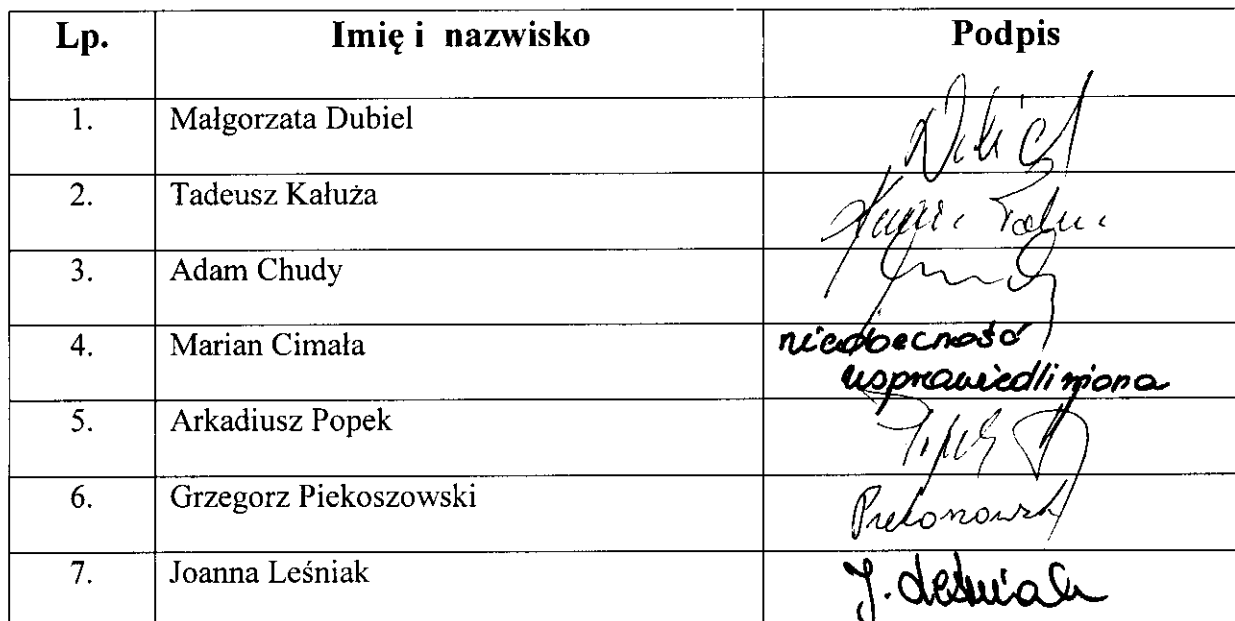 Lp. Imię i nazwisko Podpis
1. Małgorzata Dubiel
2. Tadeusz Kałuża
3. Adam Chudy
4. Marian Cimała nieobecność
usprawiedliwiona
5. Arkadiusz Popek
6. Grzegorz Piekoszowski
7. Joanna Leśniak J. Leśniak